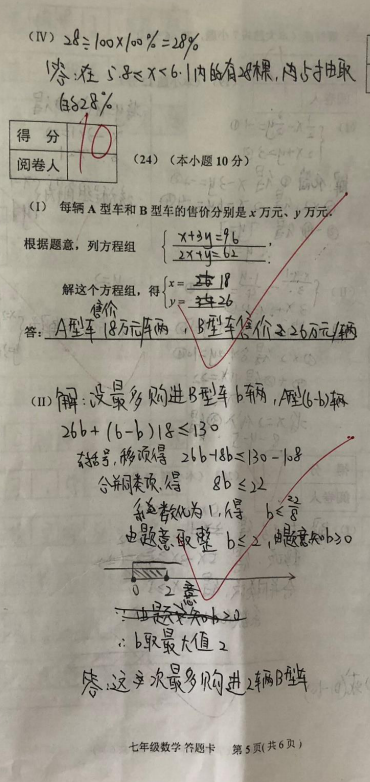 (IV) 28÷100×100%=28%
答:在 5.8≤x<6.1内的有28棵,占抽取
的28%
得 分 10
阅卷人
(24)(本小题10分)
(I) 每辆A型车和B型车的售价分别是x万元、y万元.
根据题意,列方程组 { x+3y=96
2x+y=62
解这个方程组,得 { x= 18
y= 26
售价
答: A型车18万元/辆,B型车售价是26万元/辆
(II) 解:设最多购进B型车b辆,A型(6-b)辆
26b+(6-b)18≤130
去括号,移项得 26b-18b≤130-108
合并同类项,得 8b≤22
系数化为1,得 b≤22/8
由题意取整 b≤2,由题意知b≥0
0 2
意
∵由题知b≥0
∴b取最大值2
答:这次最多购进2辆B型车
七年级数学 答题卡 第5页(共6页)